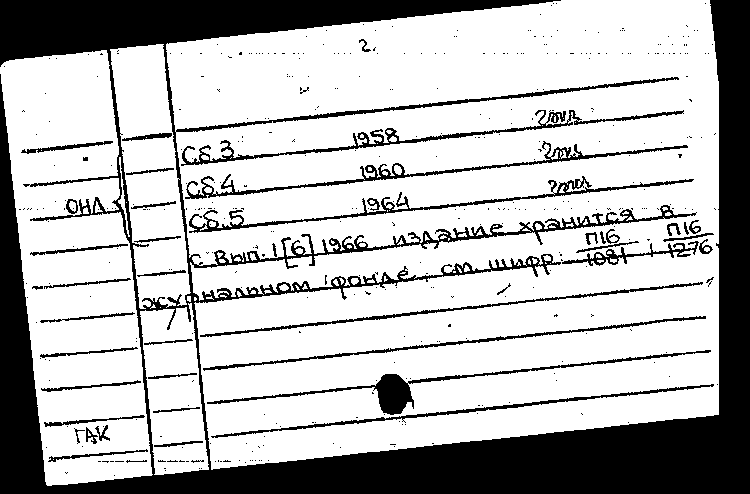 2.
Сб.3 1958
Сб.4 1960
ОНЛ
Сб.5 1964
с Вып. 1[6] 1966 издание хранится в
журнальном фонде, см. шифр: П16/1081; П16/1276.
ГАК